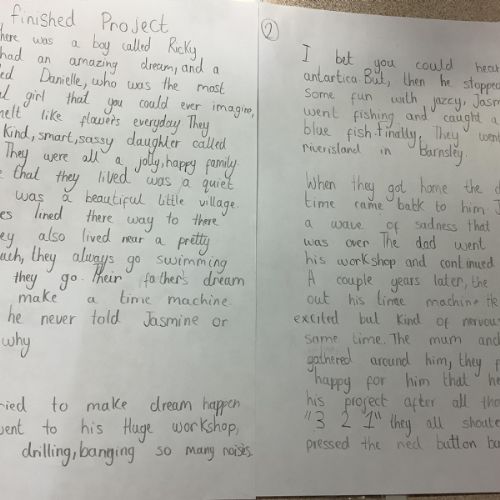 finished Project
here was a boy called Ricky
had an amazing dream, and a
Danielle, who was the most
girl that you could ever imagine,
like flowers everyday They
kind, smart, sassy daughter called
They were all a jolly, happy family.
that they lived was a quiet
was a beautiful little village.
lined there way to there
also lived near a pretty
they always go swimming
they go. Their father's dream
make a time machine.
he never told Jasmine or
why
to make dream happen
to his Huge workshop,
drilling, banging so many noises.
2
I bet you could hear
antartica. But, then he stopped
some fun with jazcy, Jasm
went fishing and caught a
blue fish. Finally, They went
riverisland in Barnsley.
When they got home the
time came batk to him
a wave of sadness that
was over The dad went
his workshop and continued
A couple years later, the
out his timee machine He
excited but kind of nervous
same time. The mum and
gathered around him, they
happy for him that he
his project after all tha
"3 2 1" they all shoute
pressed the red button bu